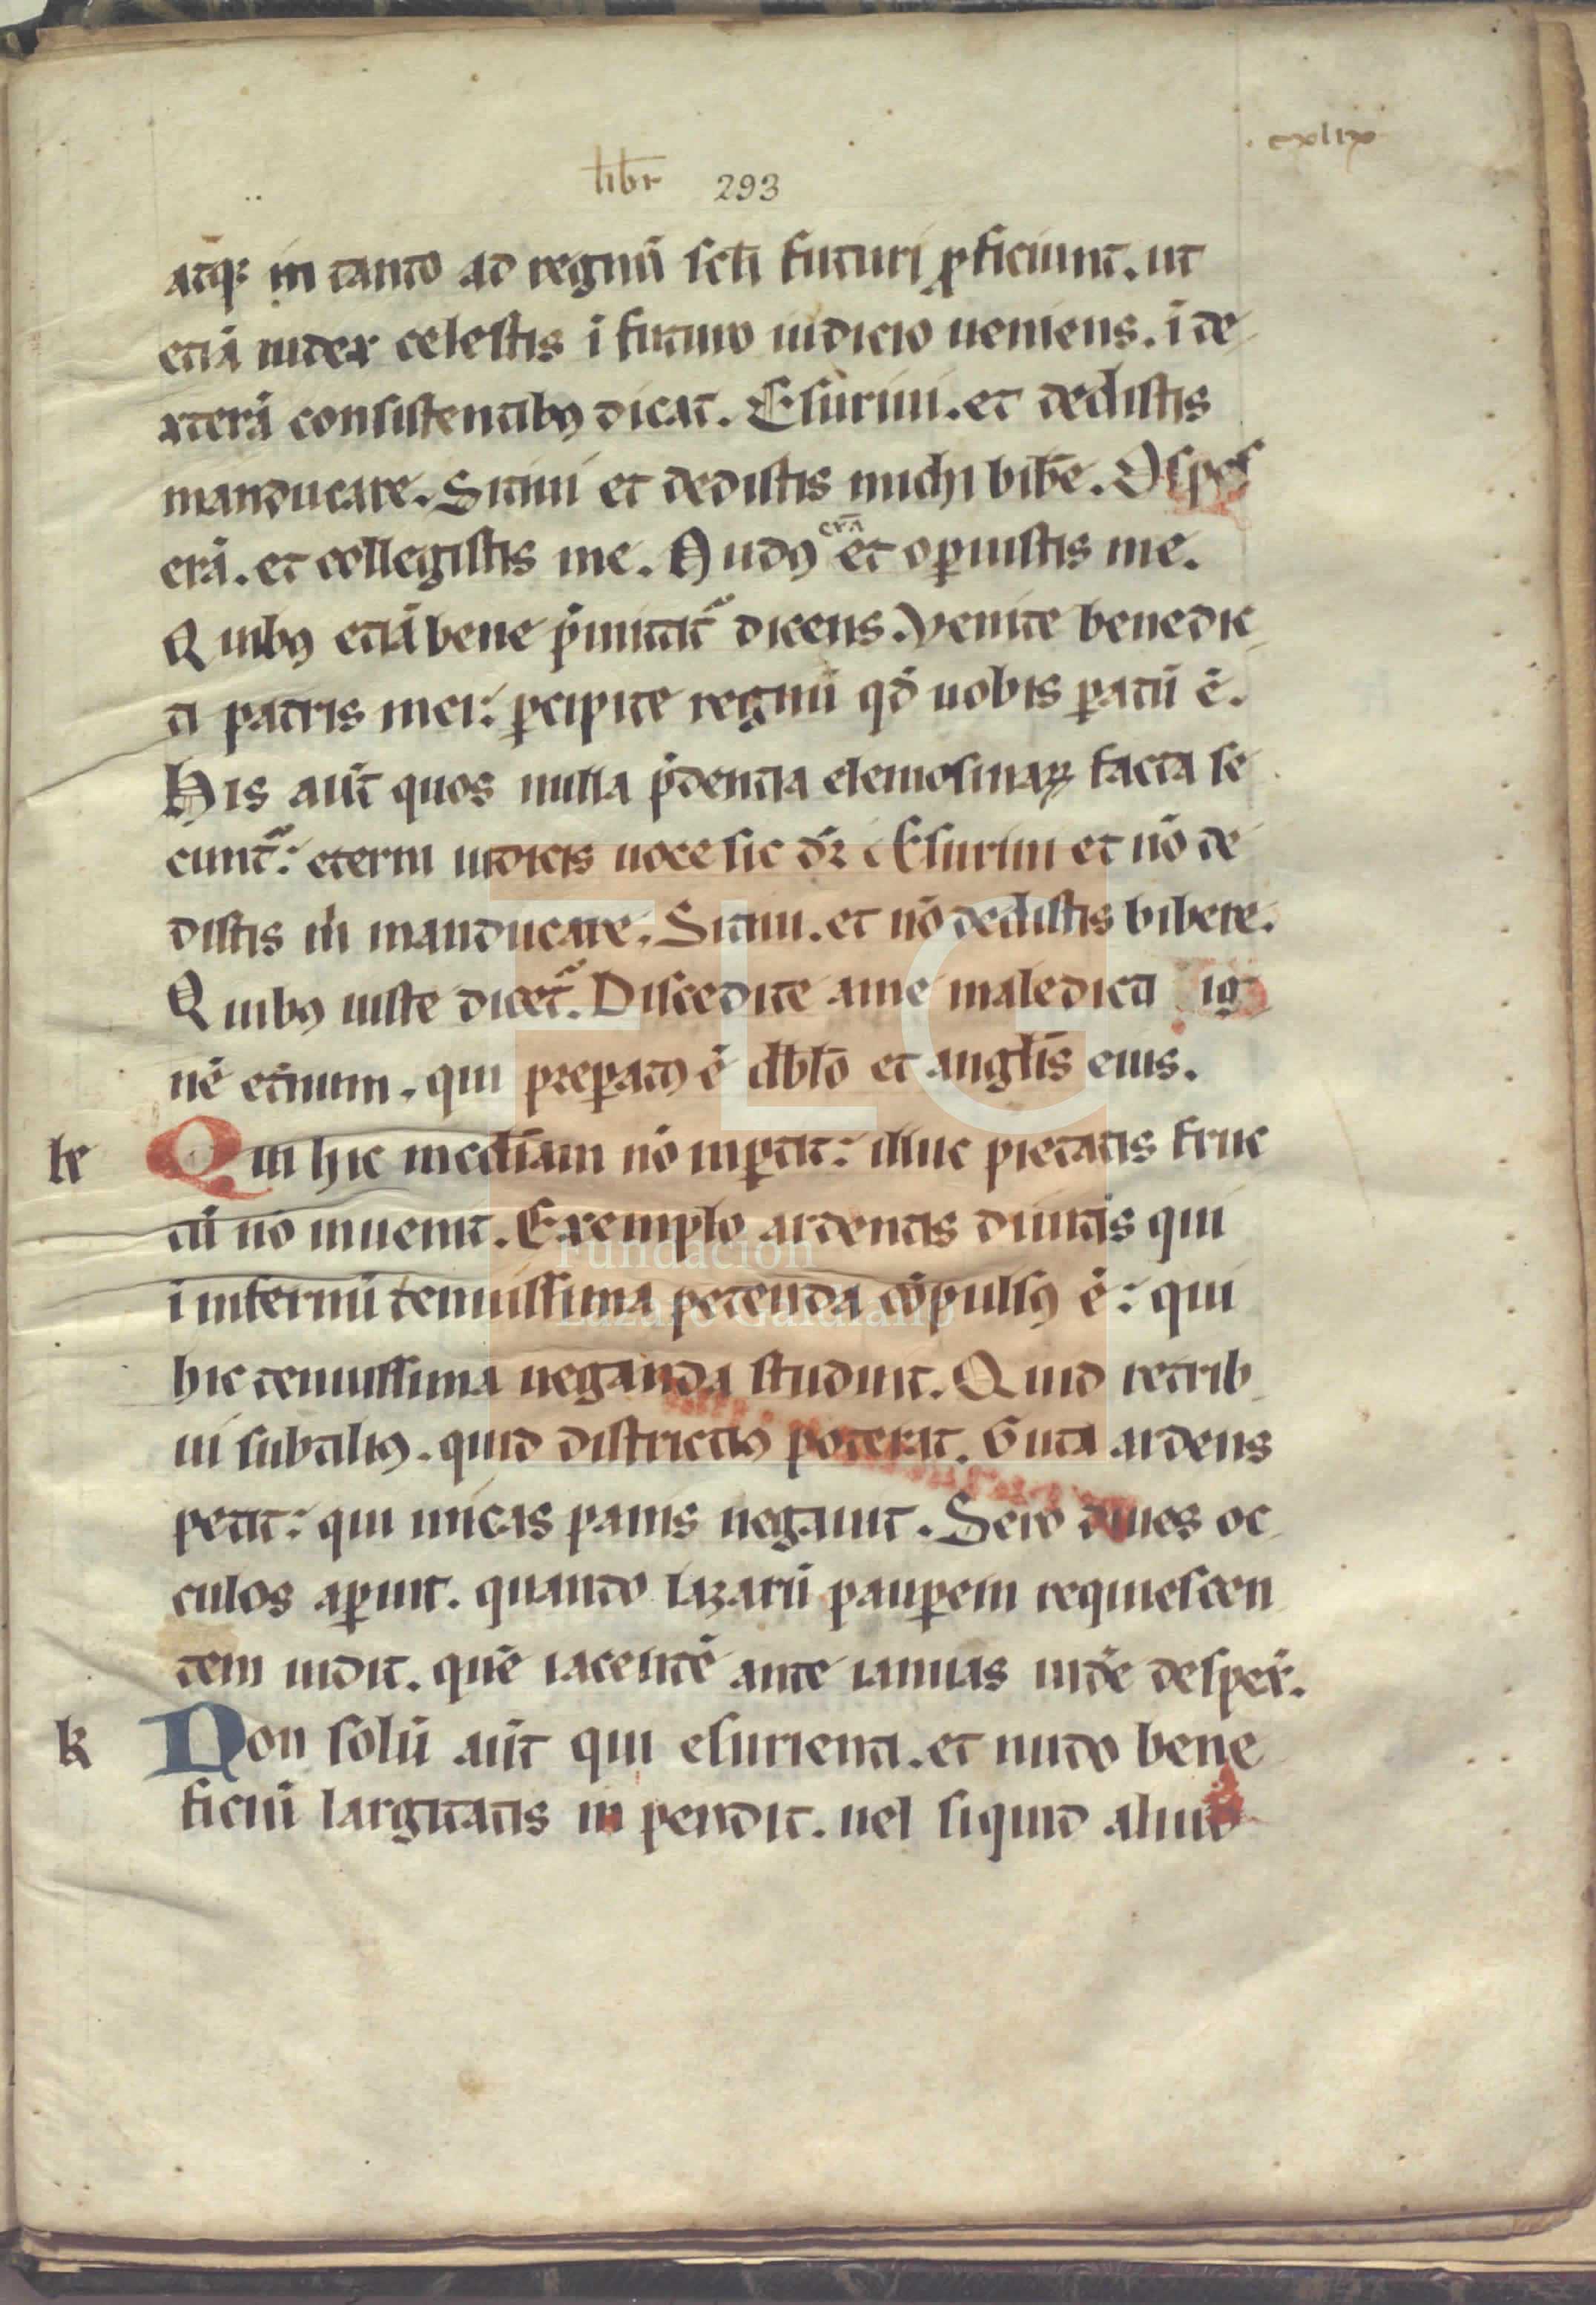 .cxlix
libr 293
atq; in tanto ad regnū scłi futuri ꝓficiunt. ut
etiā iudex celestis ī futuro iudicio ueniens. ī de
xterā consistentibꝰ dicat. Esuriui. et dedistis
manducare. Sitiui et dedistis michi bibe̅. Ospes
erā. et collegistis me. Nudꝰ erā et oꝑuistis me.
Quibꝰ etiā bene ꝓmittit᷑ dicens. Venite benedic
ti patris mei: ꝑcipite regnū qđ uobis ꝑatū ē.
His aūt quos nulla ꝓdentia elemosinaꝝ facta se
cunt᷑: eterni iudicis uoce sic dr̄. Esuriui et nō de
distis m̄ manducare. Sitiui. et nō dedistis bibere.
Quibꝰ iuste dicet᷑. Discedite a me maledicti ig
nē et̄num. qui preꝑatꝰ ē dblō et anglīs eius.
le Qui hic medīam nō inꝑtit: illuc pietatis fruc
tū nō inuenit. Exemplo ardentis diuitis qui
ī infernū tenuissima petenda cōpulsꝰ ē: qui
hic tenuissima neganda studuit. Quid retrib
ui subtiliꝰ. quid districtiꝰ poterat. Guta ardens
petit: qui micas panis negauit. Sero diues oc
culos aꝑuit. quando lazarū pauꝑem requiescen
tem uidit. quē iacentē ante ianuas uide᷑ despex᷑.
k Non solū aūt qui esurienti. et nudo bene
ficiū largitatis in pendit. uel siquid aliud
FLG
Fundación
Lázaro Galdiano